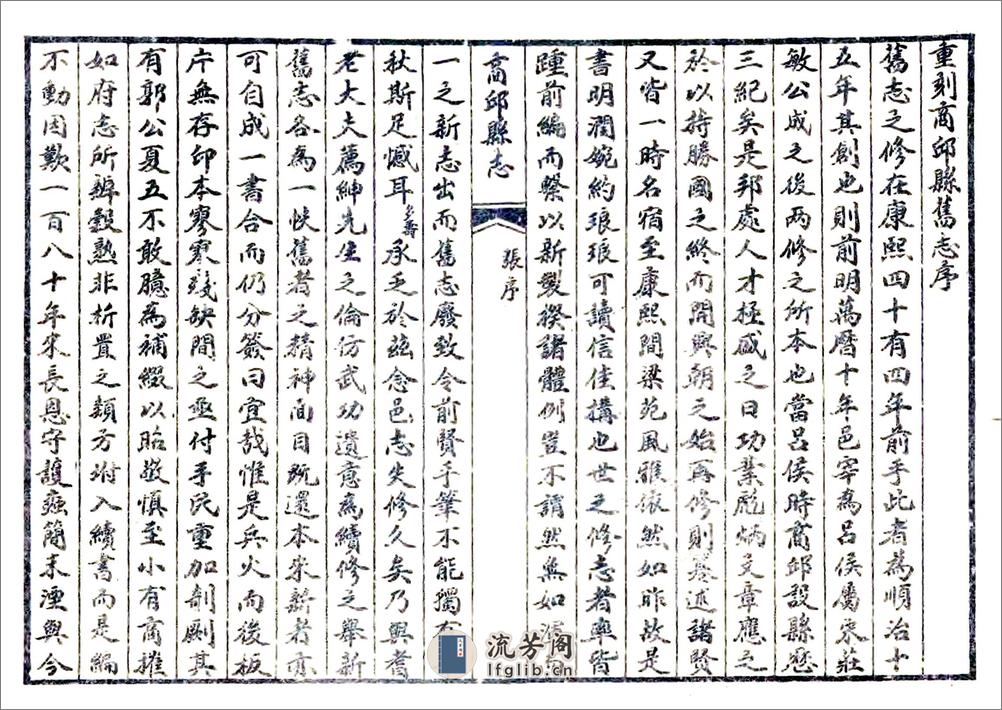 重刻商邱縣舊志序
舊志之修在康熙四十有四年前乎此者為順治十
五年其創也則前明萬曆十年邑宰為呂侯屬宋莊
敏公成之後兩修之所本也當呂侯時商邱設縣歷
三紀矣是邦處人才極盛之日功業彪炳文章應之
於以持勝國之終而開興朝之始再修則蓋述諸賢
又皆一時名宿至康熙間梁苑風雅依然如昨故是
書明潤婉約琅琅可讀信佳搆也世之修志者率皆
踵前編而繫以新製揆諸體例豈不謂然無如
商邱縣志
張序
一之新志出而舊志廢致令前賢手筆不能獨有
秋斯足憾耳多壽承乏於茲念邑志失修久矣乃與耆
老大夫薦紳先生之倫仿武功遺意為續修之舉新
舊志各為一帙舊者之精神面目既還本來新者亦
可自成一書合而仍分簽曰宜哉惟是兵火而後板
片無存印本寥寥殘缺間之亟付手民重加剞劂其
有郭公夏五不敢臆為補綴以昭敬慎至小有商搉
如府志所辯穀熟非析置之類方坿入續書而是編
不動因歎一百八十年來長恩守護蟲簡未湮與今
流芳阁
lfglib.cn